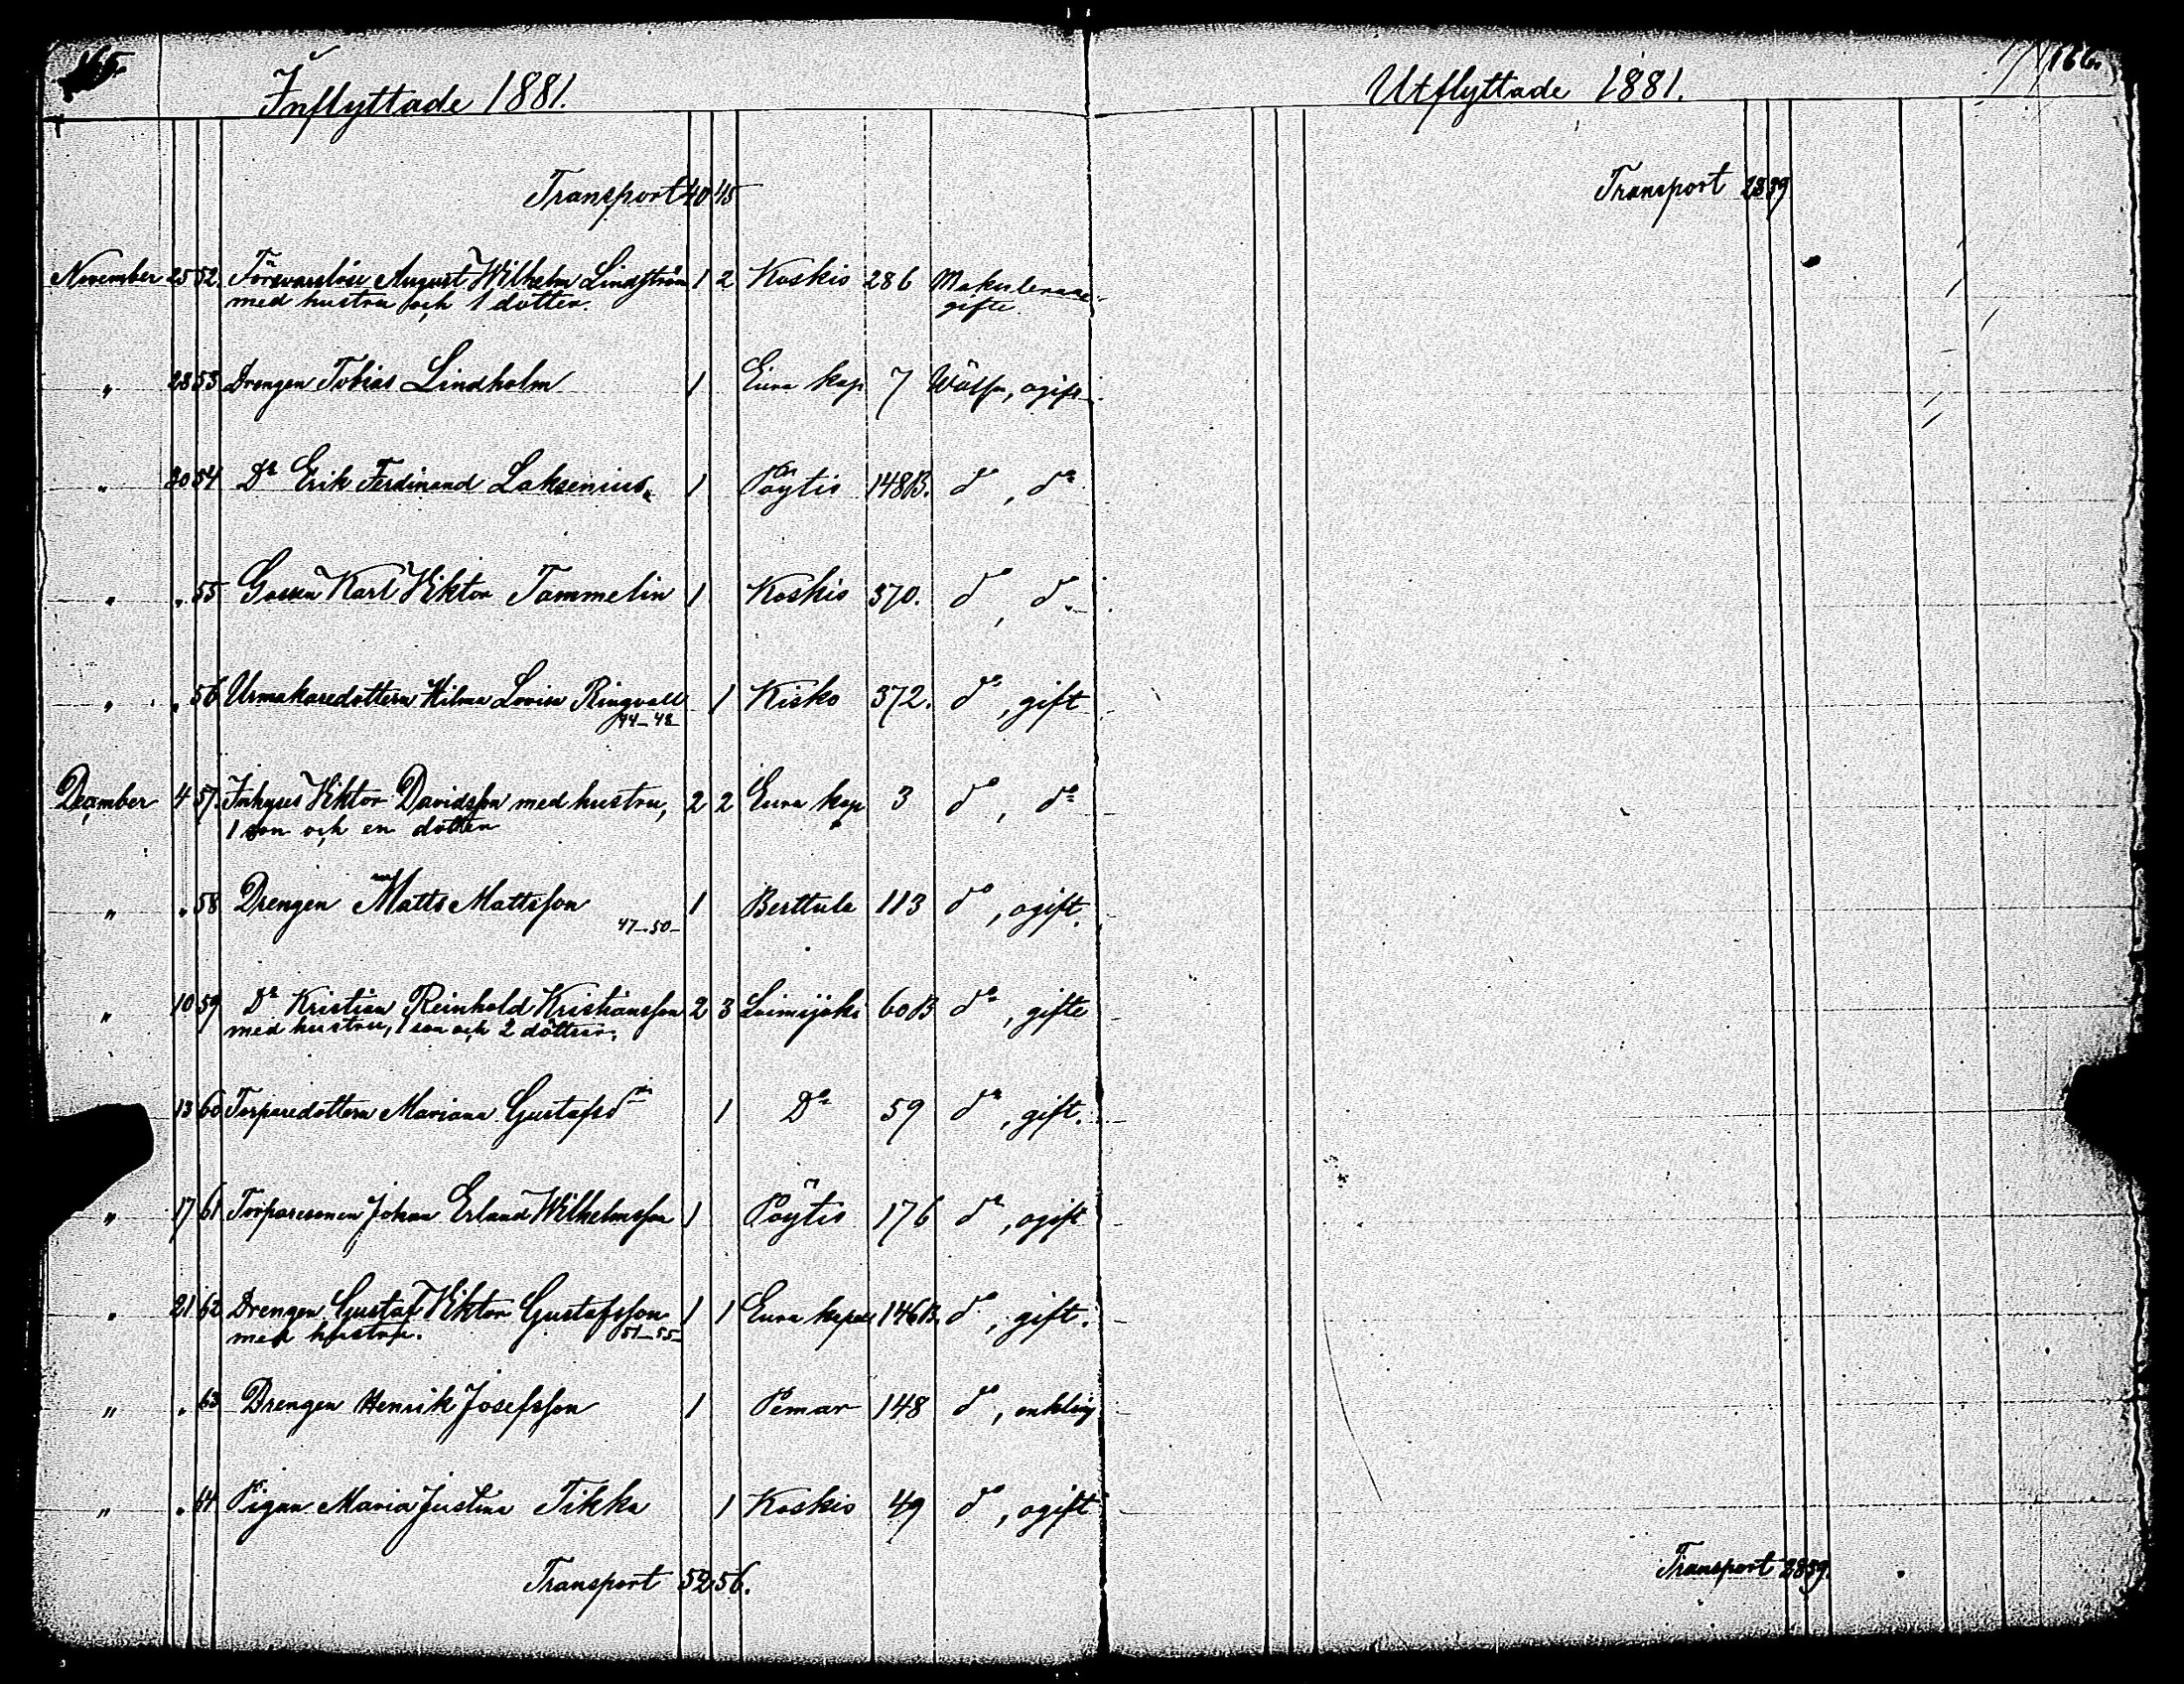 165.
Inflyttade 1881.
Transport 40 45
November 25 52. Försvarslöse August Wilhelm Lindström 1 2 Koskis 286
med hustru och 1 dotter. gifte.
" 28 53 Drengen Tobias Lindholm 1 Eura kap 7 Wälfr, ogift
" 30 54 Do Erik Ferdinand Laksenius 1 Pöytis 148B. do, do
" " 55 Gossen Karl Viktor Tammelin 1 Koskis 370. do, do
" " 56 Urmakaredottern Hilma Lovisa Ringvall 1 Kisko 372. do, gift
44-48
December 4 57. Inhyses Viktor Davidsson med hustru, 2 2 Eura kap 3 do, do
1 son och en dotter
" " 58 Drengen Matts Mattsson 1 Berttula 113 do, ogift.
47-50
" 10 59 Do Kristian Reinhold Kristiansson 2 3 Loimijoki 60B do, gifte
med hustru, 1 son och 2 döttrar.
13 60 Torparedottern Mariana Gustafsdr 1 Do 59 do, gift.
" 17 61 Torparesonen Johan Erland Wilhelmsson 1 Pöytis 176 do, ogift
" 21 62 Drengen Gustaf Viktor Gustafsson 1 1 Eura kapell 146B. do, gift.
med hustru. 51-55
" " 63 Drengen Henrik Josefsson 1 Pemar 148 do, enkling
" " 64 Pigan Maria Justina Tikka 1 Koskis 49 do, ogift
Transport 52 56.
166.
Utflyttade 1881.
Transport 28 39
Transport 28 39.